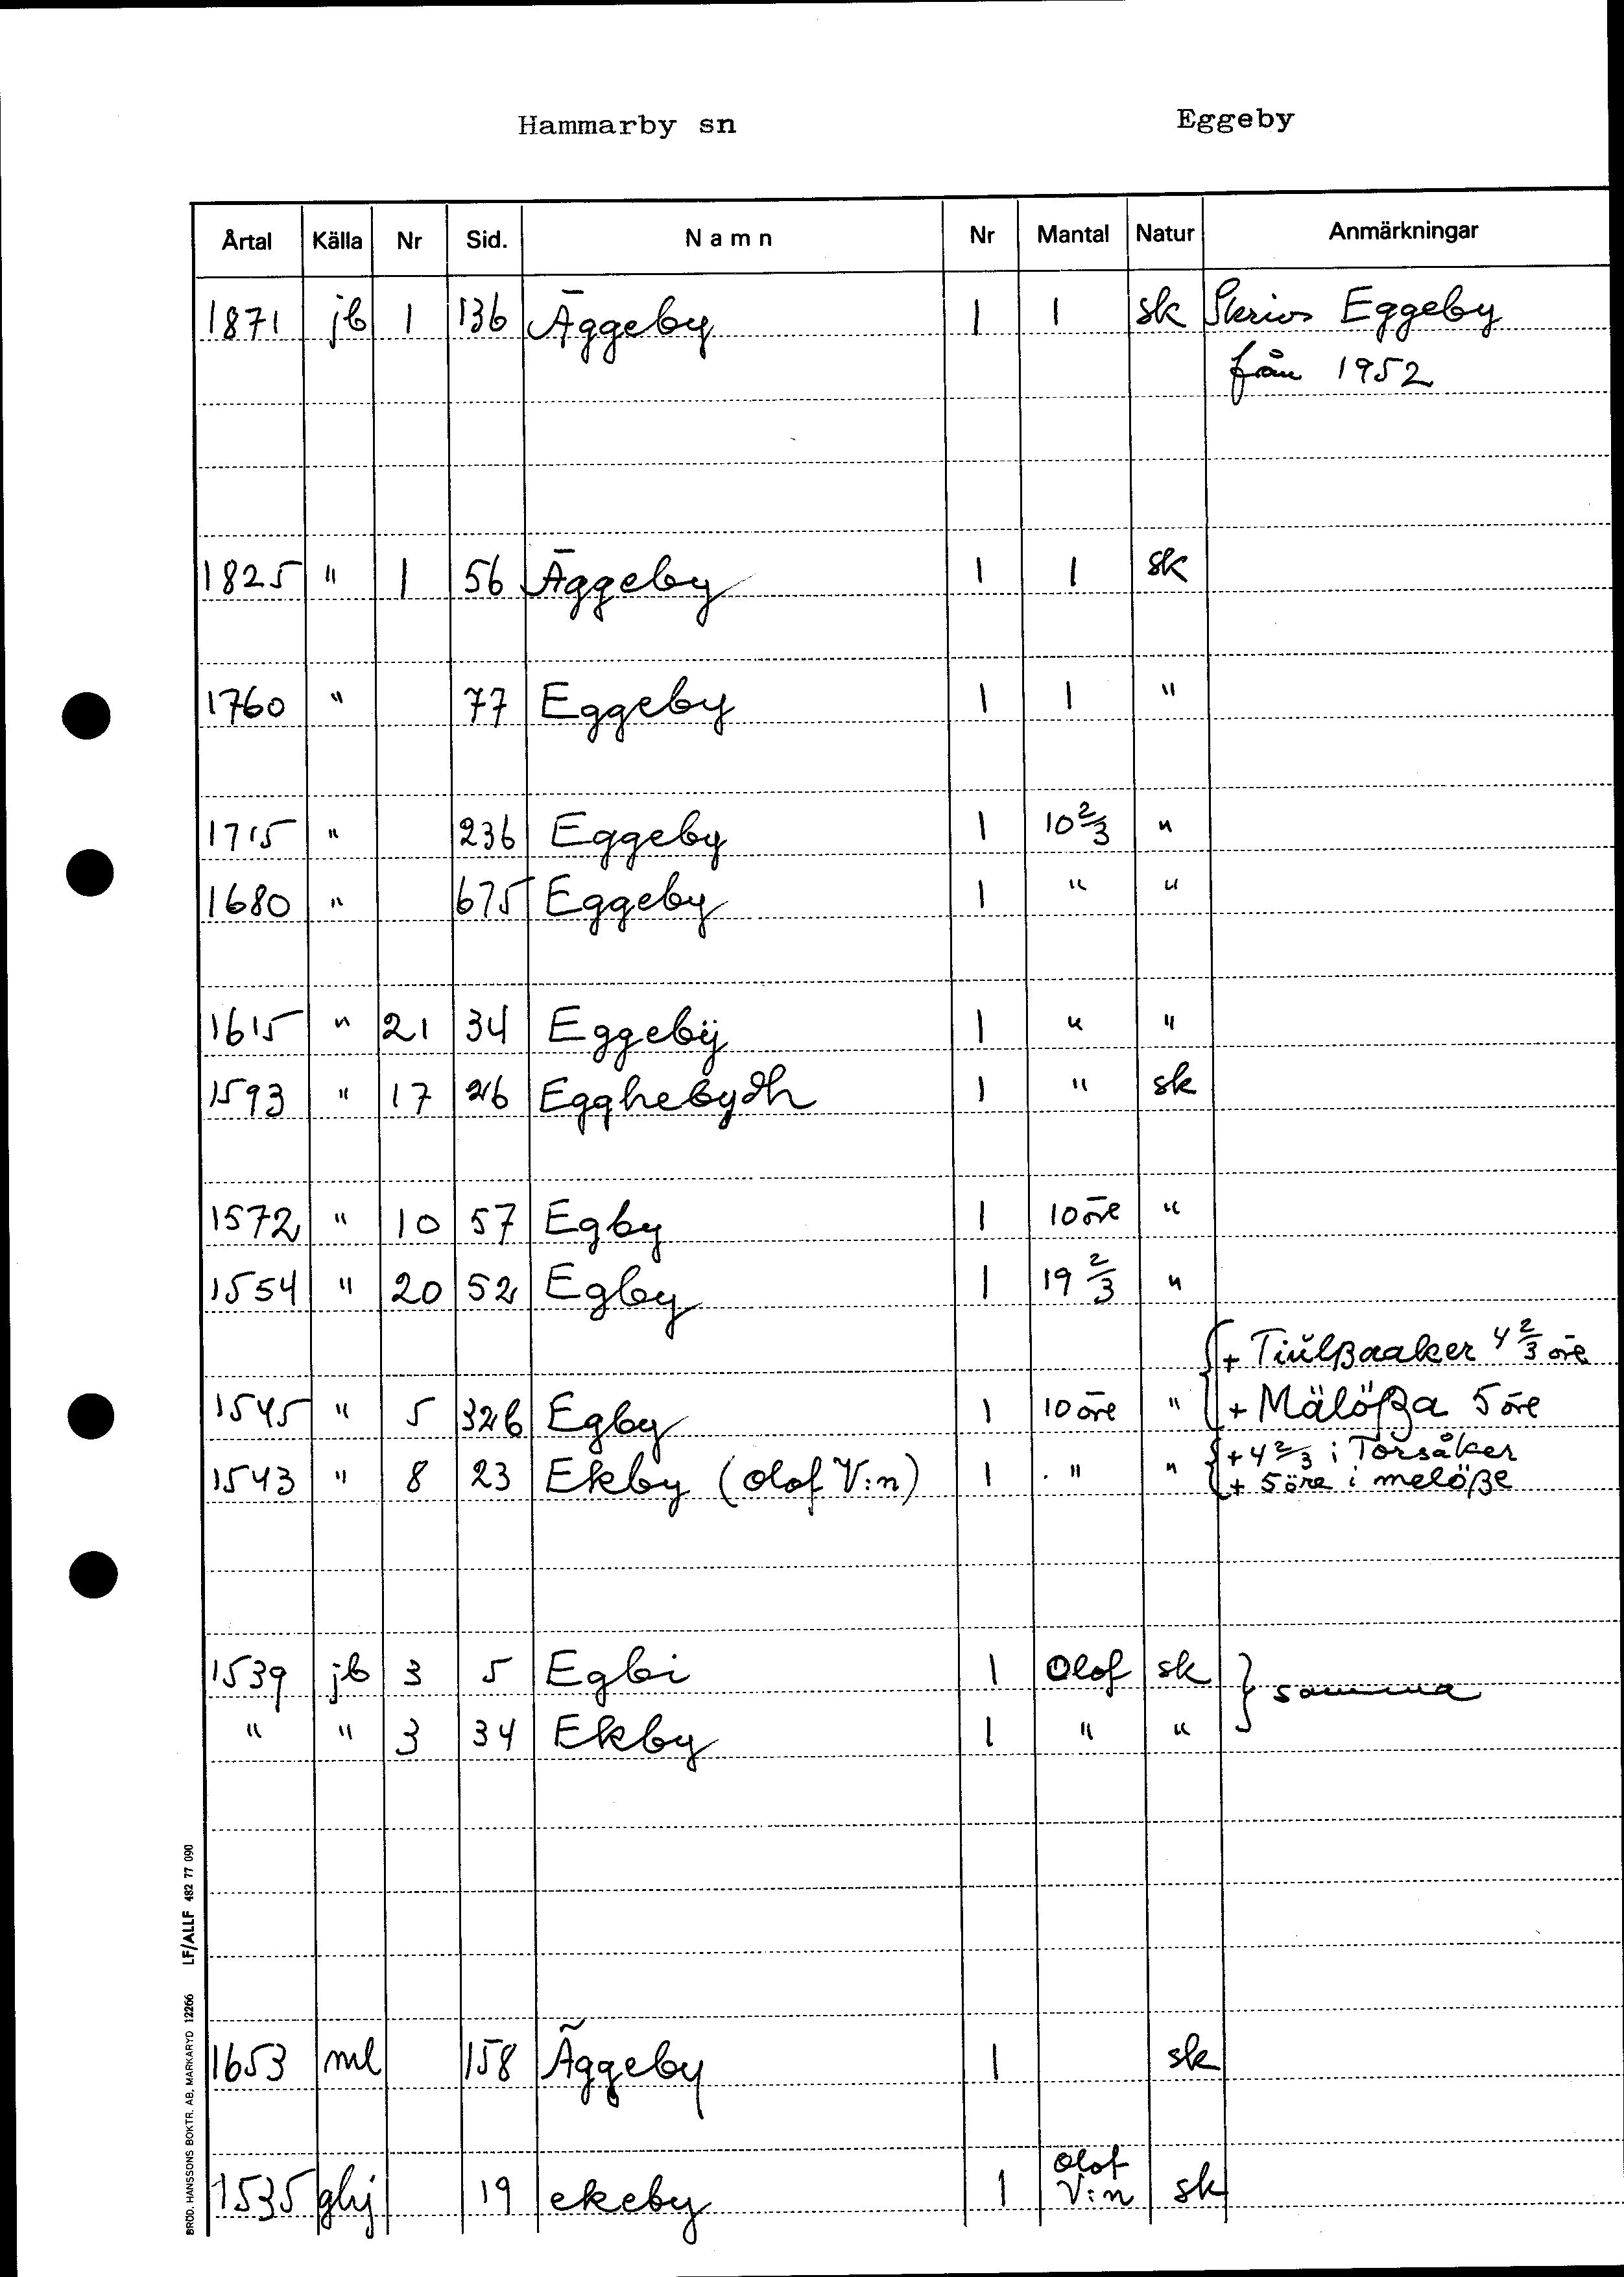 Hammarby sn Eggeby
Årtal Källa Nr Sid. Namn Nr Mantal Natur Anmärkningar
1871 jb 1 136 Äggeby 1 1 sk Skrivs Eggeby
från 1952
1825 " 1 56 Äggeby 1 1 sk
1760 " 77 Eggeby 1 1 "
1715 " 236 Eggeby 1 10 2/3 "
1680 " 675 Eggeby 1 " "
1615 " 21 34 Eggebÿ 1 " "
1593 " 17 26 Egghebydh 1 " sk
1572 " 10 57 Egby 1 10 öre "
1554 " 20 52 Egby 1 19 2/3 "
+ Tiulßaaker 4 2/3 öre
1545 " 5 326 Egby 1 10 öre " + Mälößa 5 öre
1543 " 8 23 Ekby (Olof V:n) 1 " " + 4 2/3 i Torsåker
+ 5 öre i melöße
1539 jb 3 5 Egbi 1 Olof sk } samma
" " 3 34 Ekby 1 " "
1653 ml 158 Äggeby 1 sk
1535 ghj 19 ekeby 1 Olof V:n sk
BRÖD. HANSSONS BOKTR. AB, MARKARYD 12266 LF/ALLF 482 77 090